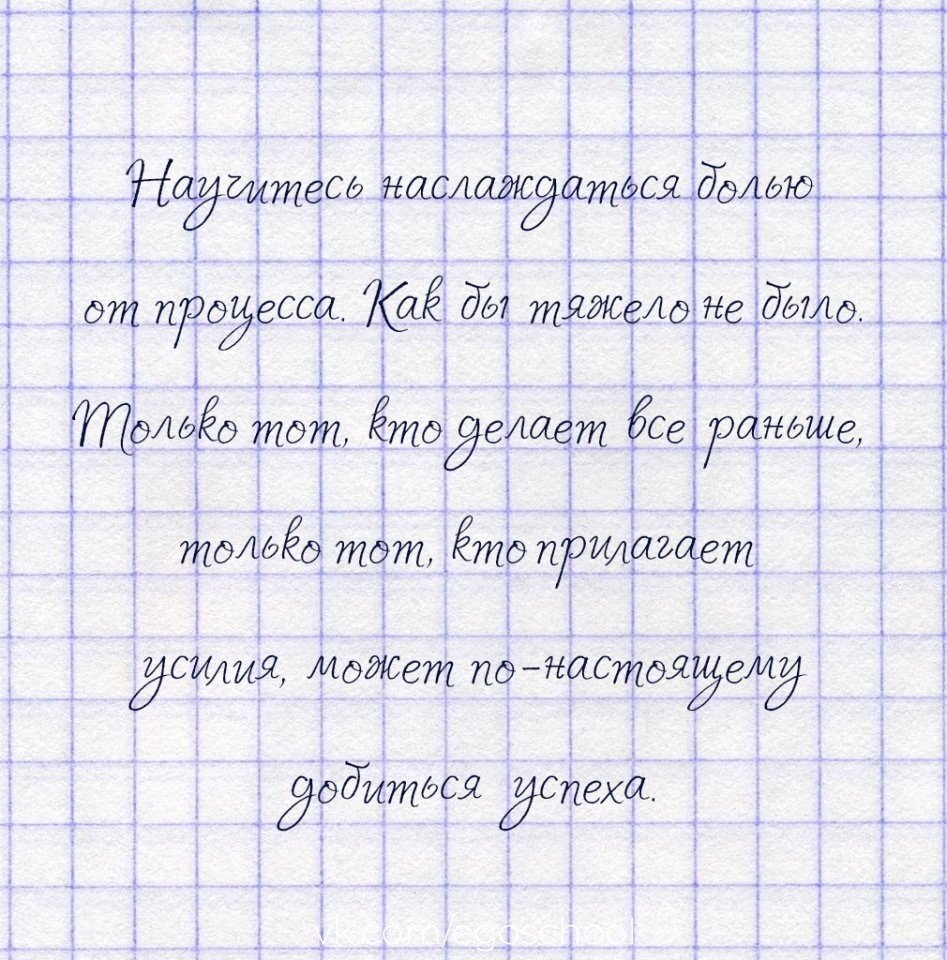 Научитесь наслаждаться болью
от процесса. Как бы тяжело не было.
Только тот, кто делает все раньше,
только тот, кто прилагает
усилия, может по-настоящему
добиться успеха.
vk.com/egoschool